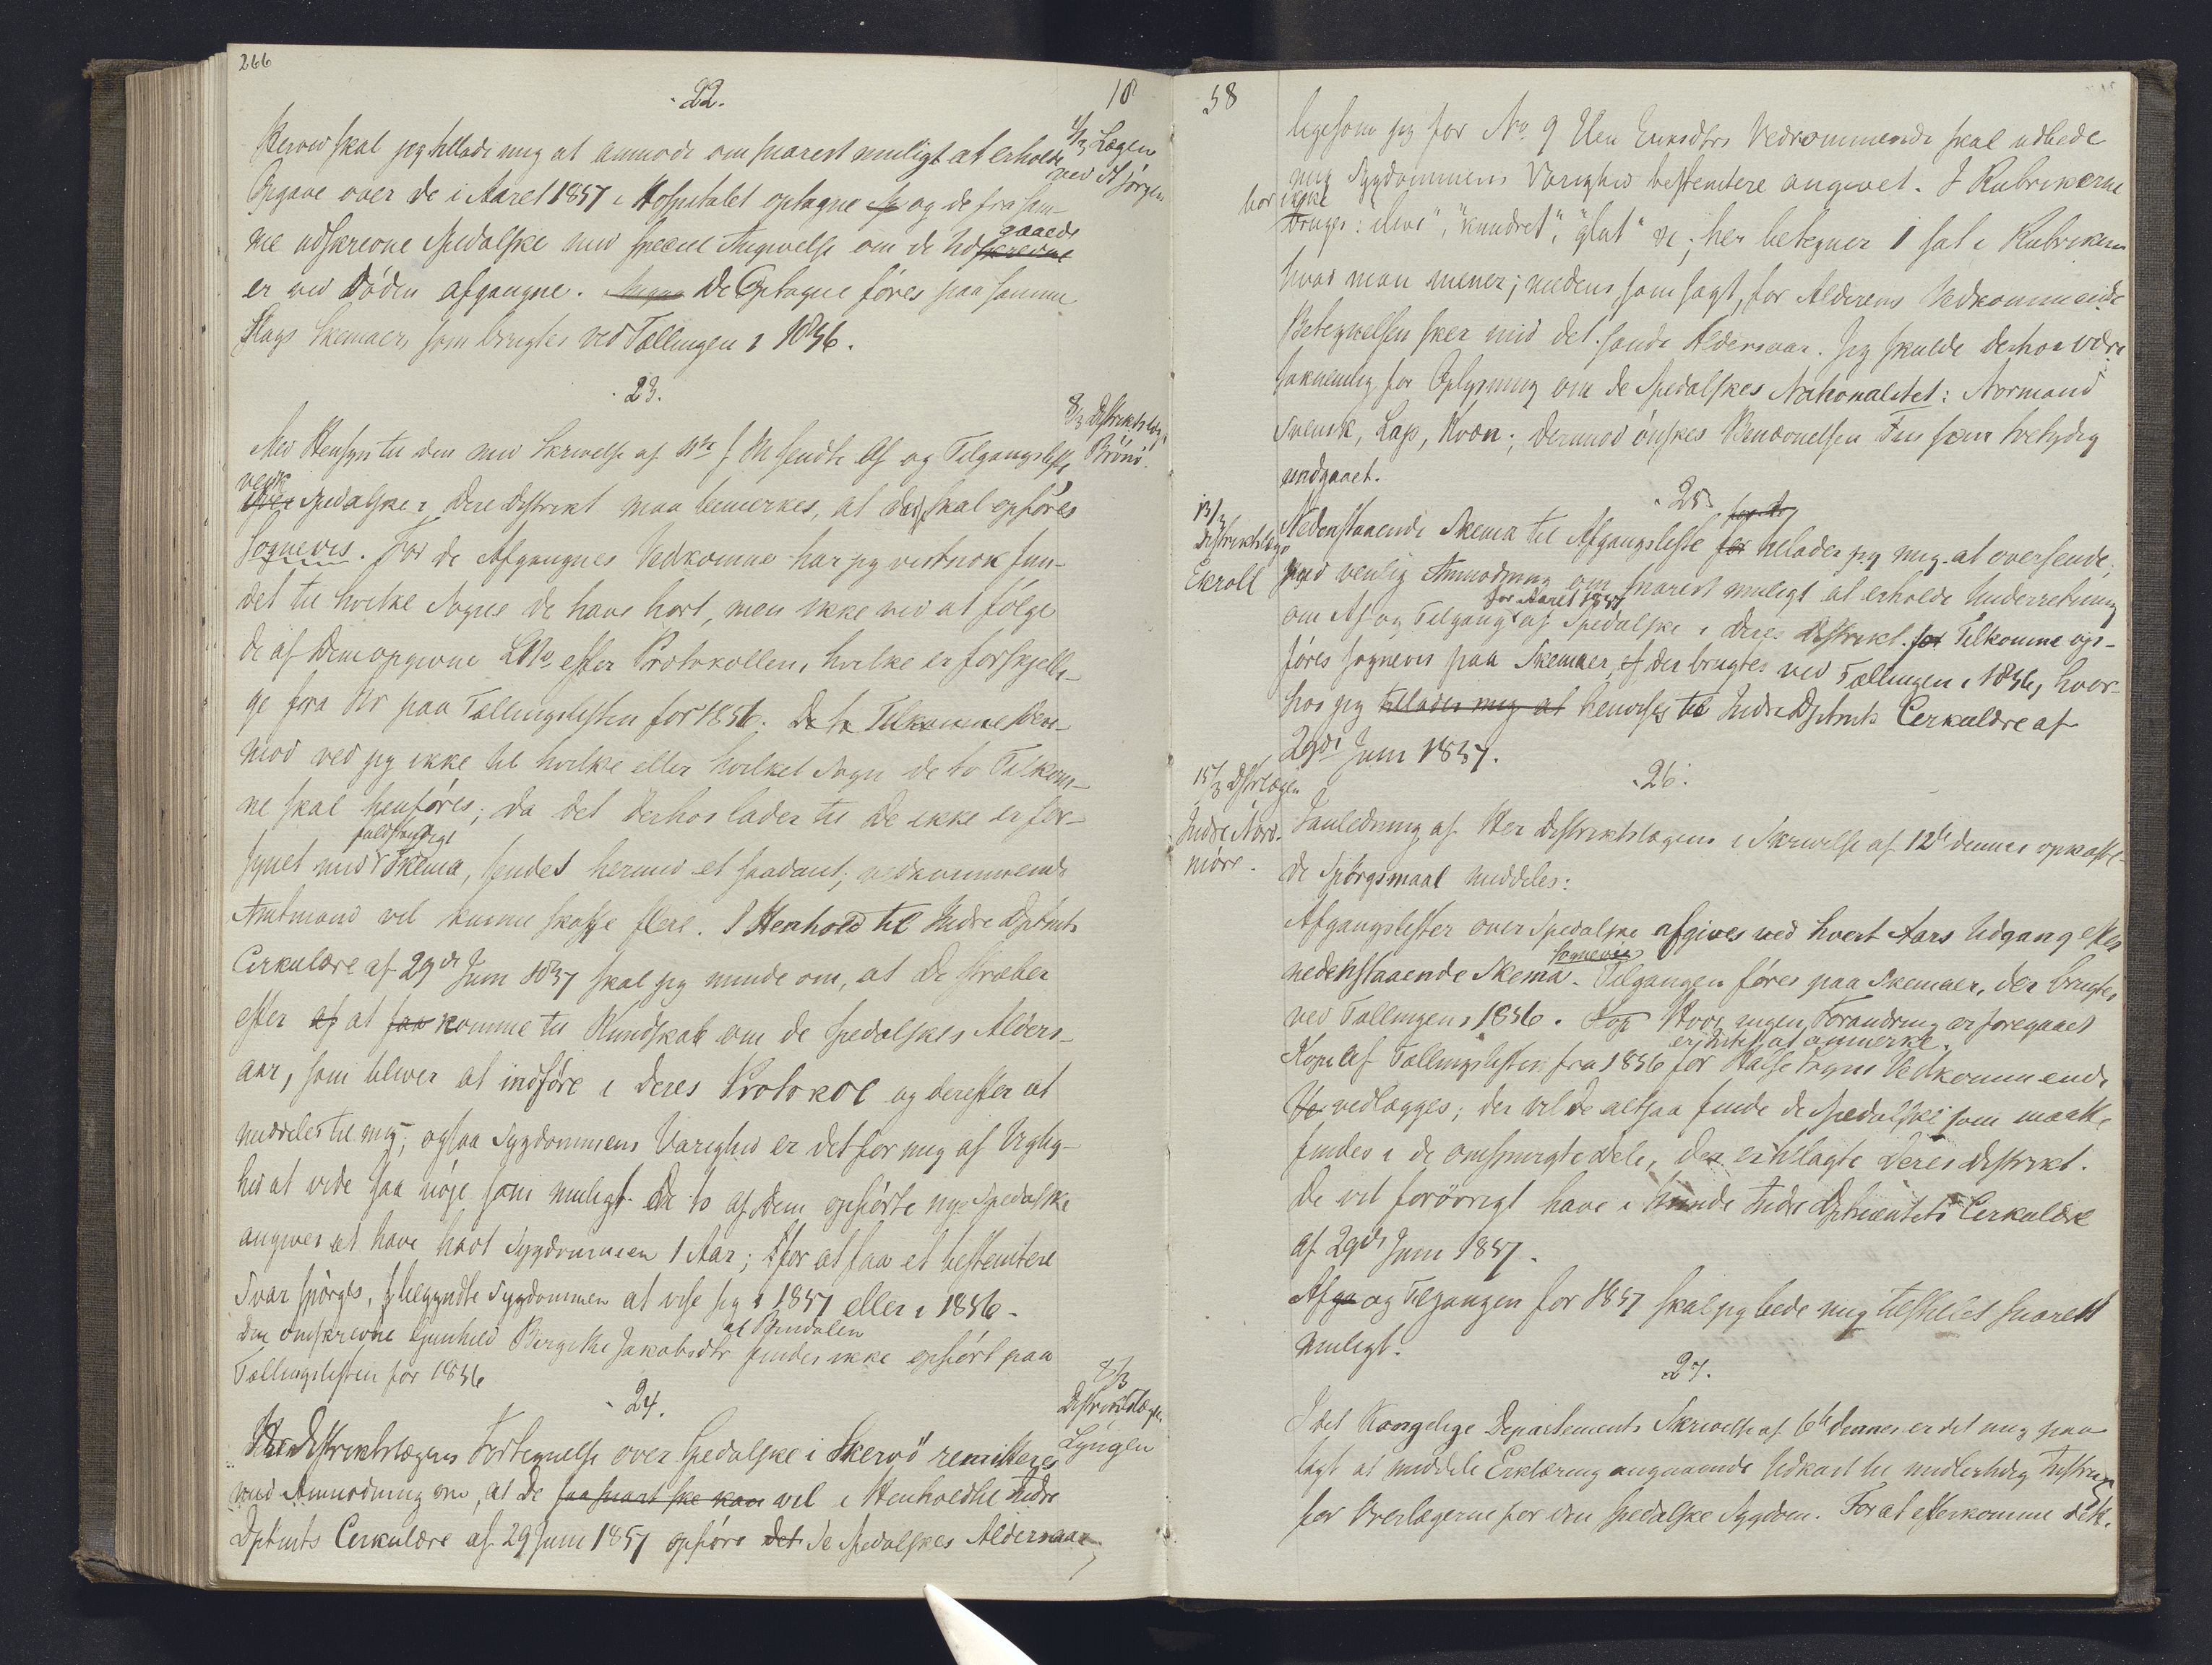 266
22.
18
58
4/3 Lægen ved St Jørgen
Herved skal jeg tillade mig at anmode om snarest muligt at erholde
Opgave over de i Aaret 1857 i Hospitalet optagne Sp og de fra sam-
me udskrevne Spedalske med speciel Angivelse om de Udskrevne gaaede
er ved Døden afgangne. De Optagne føres paa samme
Slags Skemaer, som brugtes ved Tællingen i 1856.
23.
8/3 Distriktslæge Brönö.
Med Hensyn til den med Skrivelse af f M sendte Af og Tilgangsliste
over vedk Spedalske i Dere Distrikt maa bemerkes, at der skal opføres
Sognevis. For de Afgangnes Vedkomme har jeg vistnok fun-
det til hvilke Sogne de have hørt, men ikke ved at følge
de af Dem opgivne LNo efter Protokollen, hvilke er forskjelli-
ge fra No paa Tællingslisten for 1856. De to Tilkomne Der-
mod ved jeg ikke til hvilke eller hvilket Sogn de to Tilkom-
ne skal henføres; da det derhos lader til De ikke er for-
fuldstændigt
synet med Skema, sendes herved et saadant; vedkommende
Amtmand vil kunne skaffe flere. I Henhold til Indre Dptmts
Cirkulære af 29de Juni 1857 skal jeg minde om, at De stræber
efter af at faa komme til Kundskab om de Spedalskes Alders-
aar, som bliver at indføre i Deres Protokol og derefter at
meddeles til mig; ogsaa Sygdommens Varighed er det for mig af Vigtig-
hed at vide saa nøje som muligt. De to af Dem opførte nye Spedalske
angives at have havt Sygdommen 1 Aar; for at faa et bestemtere
Svar spørges, begyndte Sygdommen at vise sig i 1857 eller i 1856.
af Brindalen
Den omskrevne Gunhild Birgitte Jakobsdtr findes ikke opført paa
Tællingslisten for 1856
24.
8/3 Distriktslægen Lyngen
Distriktslægens Fortegnelse over Spedalske i Skervö remitteres
med Anmodning om, at De saa snart ske kan vil i Henhold til Indre
Dptmts Cirkulære af 29 Juni 1857 opføre det de Spedalskes Aldersaar,
ligesom jeg for No 9 Elen Eriksdtrs Vedkommende skal udbede
mig Sygdommens Varighed bestemtere angivet. I Rubrikerne
bør ikke
bruges: "knudret", "glat" ; her betegner 1 sat i Rubriken
hvad man mener; medens, som sagt, for Alderens Vedkommende
Betegnelsen sker med det sande Aldersaar. Jeg skulde derhos være
taknemlig for Oplysning om de Spedalskes Nationalitet: Normand
Svensk, Lap, Kvæn; dermod önskes Benævnelsen Fin som tvetydig
undgaaet.
25.
13/3 Distriktslæge Ekroll
Nedenstaaende Skema til Afgangsliste for tillader jeg mig at oversende,
med venlig Anmodning om snarest muligt at erholde Underretning
for Aaret 1857
om Af og Tilgang af Spedalske i Deres Distrikt. for Tilkomne op-
føres sognevis paa Skemaer, af der brugtes ved Tællingen i 1856, hvor-
hos jeg tillader mig at henviser til Indre Dptmts Cirkulære af
29de Juni 1857.
26.
15/3 Dstrlægen Indre Nord-möre.
I Anledning af Her Distriktslægens i Skrivelse af 12te dennes opkaste-
de Spörgsmaal meddeles:
Afgangslister over Spedalske afgives ved hvert Aars Udgang efter
Sognevis
nedenstaaende Skema. Tilgangen føres paa Skemaer, der brugtes
ved Tællingen i 1856. Hvor ingen Forandring er foregaaet
er Intet at anmerke.
Kopi af Tællingslisten fra 1856 for Halse Sogns Vedkommende
vedlægges; der vil De altsaa finde de Spedalske som maatte
findes i de omspurgte Dele, der er tillagte Deres Distrikt.
De vil forövrigt have i Minde Indre Dptmentets Cirkulære
af 29de Juni 1857.
Afga og Tilgangen for 1857 skal jeg bede mig tilstillet snarest
muligt.
27.
I det Kongelige Departements Skrivelse af 6te dennes er det mig paa-
lagt at meddele Erklæring angaaende Udkast til midlertidig Instrux
for Overlægerne for den spedalske Sygdom. For at efterkomme dette